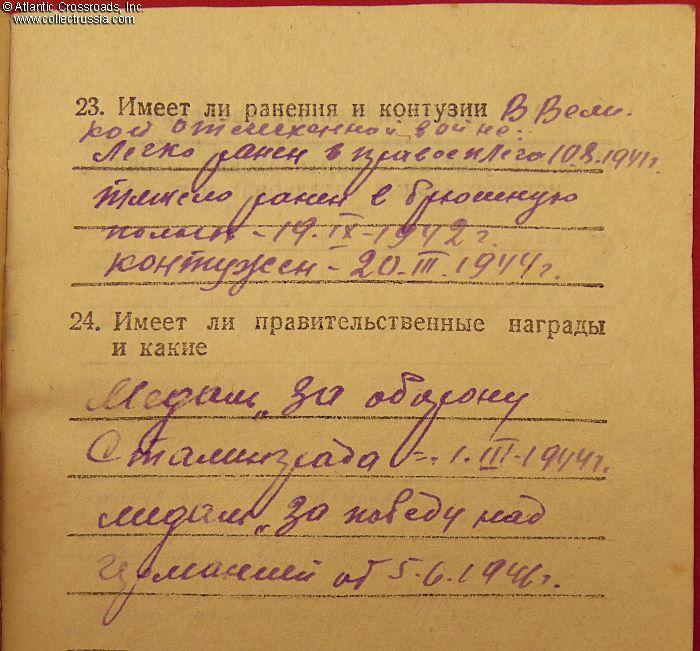 © Atlantic Crossroads, Inc.
www.collectrussia.com
23. Имеет ли ранения и контузии В Вели-
кой Отечественной войне:
легко ранен в правое плечо 10.8.1941г.
тяжело ранен в брюшную
полость - 19.IX-1942г.
контужен - 20.III.1944г.
24. Имеет ли правительственные награды
и какие
Медаль „За оборону
Сталинграда -. 1.III-1944г.
медаль „За победу над
Германией от 5.6.1946г.